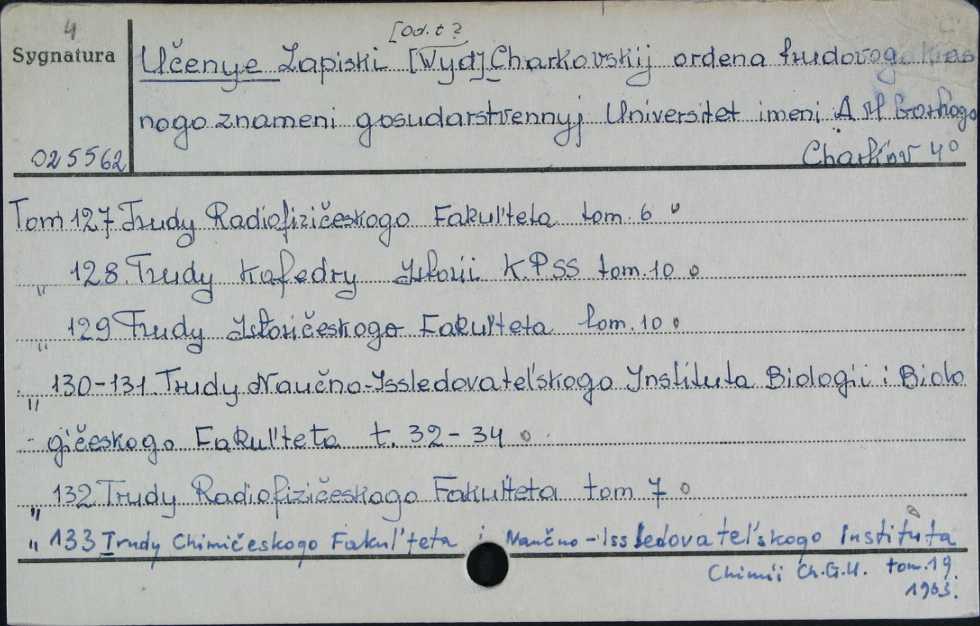 4
[Od. t ?
Sygnatura
Učenye Zapiski [Wyd] Charkovskij ordena trudovogo kras
nogo znameni gosudarstvennyj Universitet imeni A M Gorkogo
025562
Charkiv 4°
Tom 127 Trudy Radiofizičeskogo Fakul'teta tom. 6
" 128. Trudy Kafedry Istorii K.P.SS tom. 10
" 129 Trudy Istoričeskogo Fakul'teta tom. 10
" 130-131. Trudy Naučno-Issledovatel'skogo Instituta Biologii i Biolo
- gičeskogo Fakul'teta t. 32-34
" 132 Trudy Radiofizičeskogo Fakulteta tom 7
" 133 Trudy Chimičeskogo Fakul'teta i Naučno-Issledovatel'skogo Instituta
Chimii Ch.G.U. tom. 19.
1963.